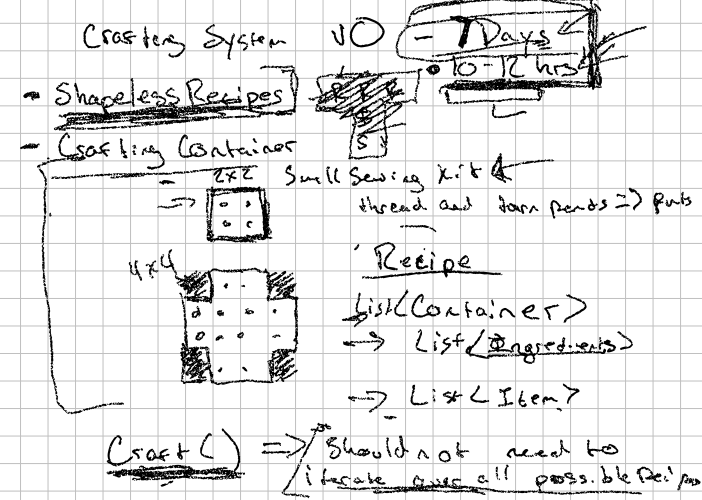 Crafting System VO - 7 Days
- Shapeless Recipes • 10-12 hrs
S
- Crafting Container
2x2 Small Sewing Kit
thread and torn pants => pants
4x4
Recipe
List<Container>
-> List<Ingredients>
-> List<Item>
Craft() => Should not need to
iterate over all possible Recipes